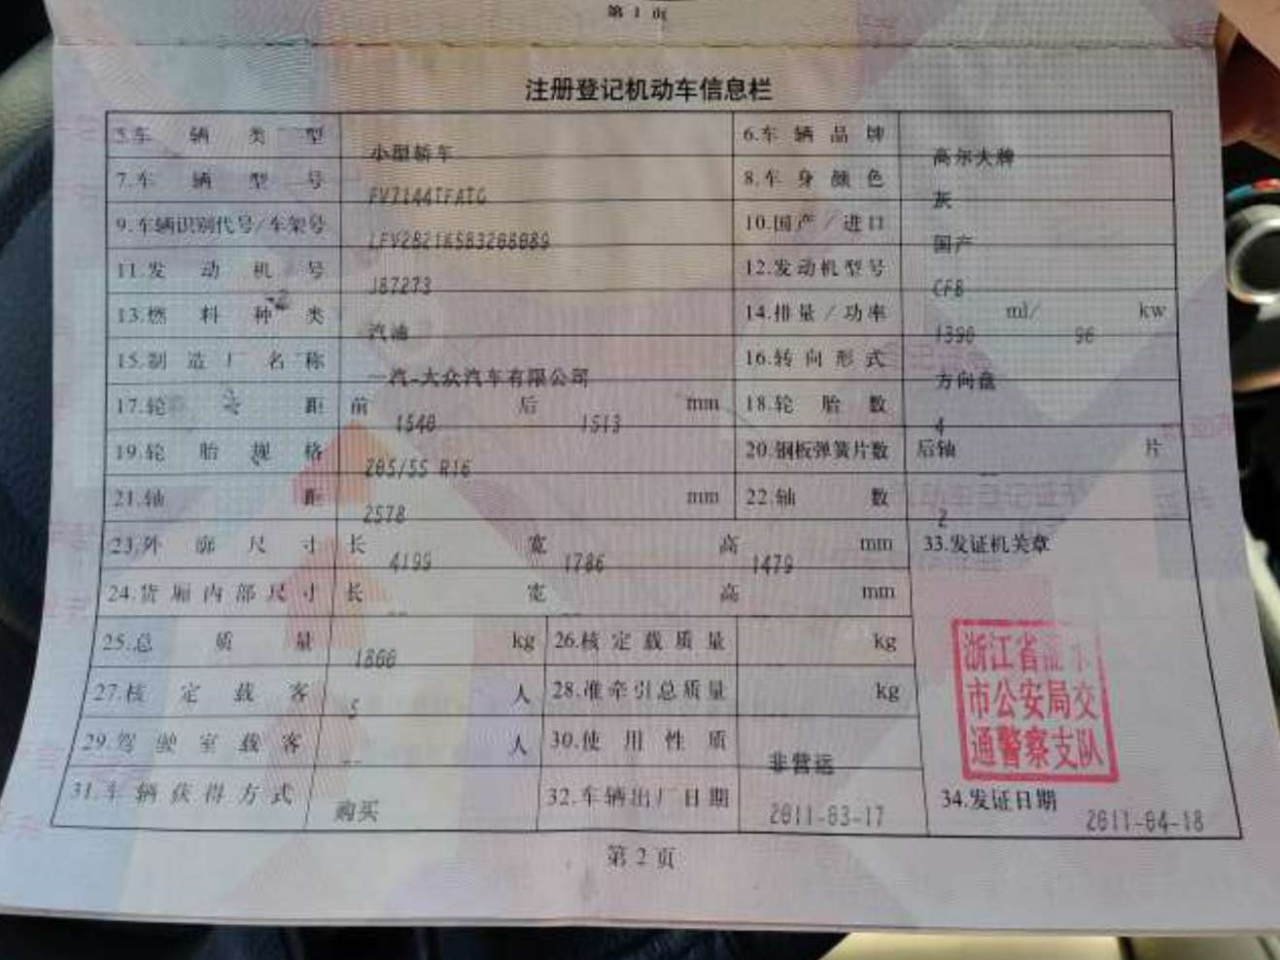 第 1 页
注册登记机动车信息栏
5.车辆类型 小型轿车 6.车辆品牌 高尔夫牌
7.车辆型号 FV7144TFATG 8.车身颜色 灰
9.车辆识别代号/车架号 10.国产/进口 国产
11.发动机号 J87273 12.发动机型号 CFB
13.燃料种类 汽油 14.排量/功率 1390 ml/ 96 kw
15.制造厂名称 一汽-大众汽车有限公司 16.转向形式 方向盘
17.轮距 前 1540 后 1513 mm 18.轮胎数 4
19.轮胎规格 205/55 R16 20.钢板弹簧片数 后轴 -- 片
21.轴距 2578 mm 22.轴数 2
23.外廓尺寸 长 4199 宽 1786 高 1479 mm 33.发证机关章
24.货厢内部尺寸 长 -- 宽 -- 高 -- mm
25.总质量 1860 kg 26.核定载质量 kg
27.核定载客 5 人 28.准牵引总质量 kg
29.驾驶室载客 -- 人 30.使用性质 非营运
31.车辆获得方式 购买 32.车辆出厂日期 2011-03-17 34.发证日期 2011-04-18
浙江省
市公安局交
通警察支队
第 2 页